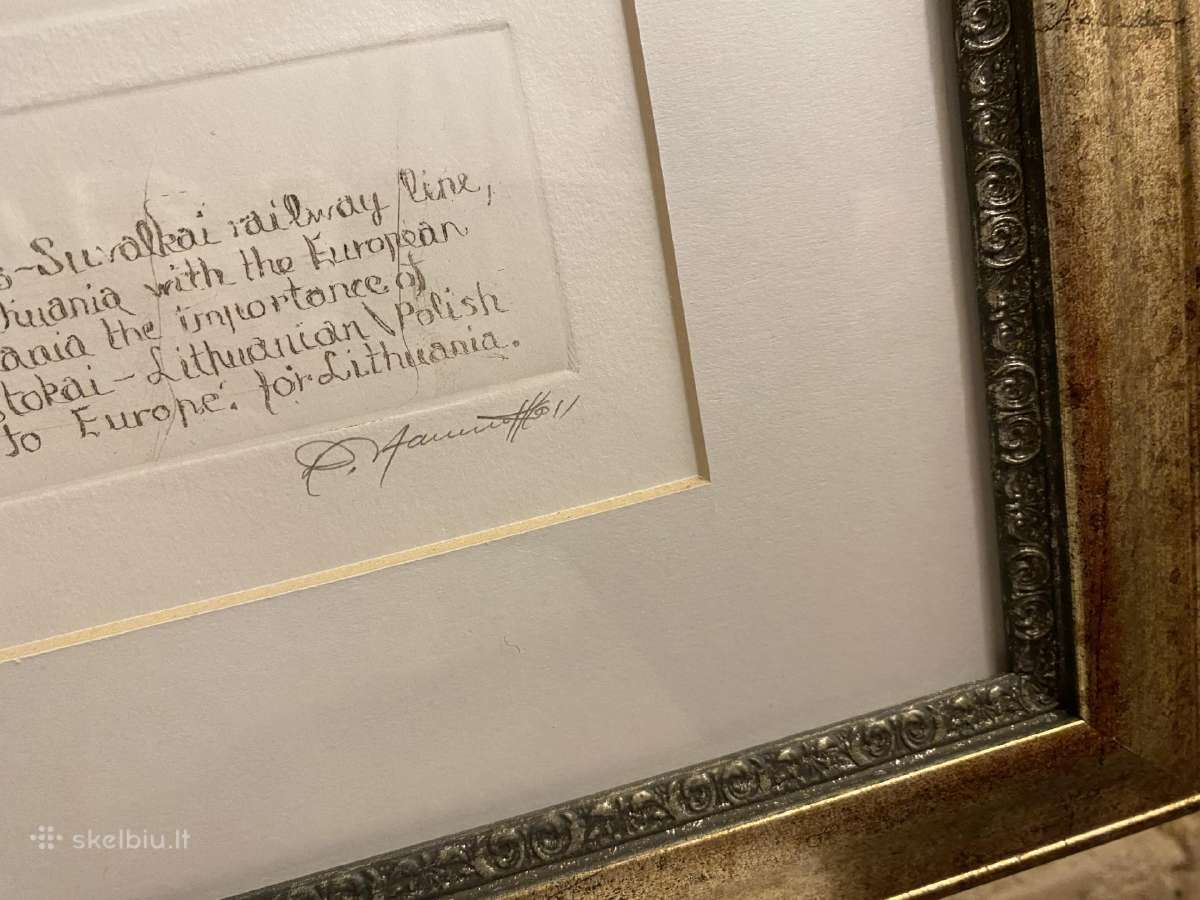 s-Suvalkai railway line,
huania with the European
ania the importance of
stokai-Lithuanian\Polish
to Europe. for Lithuania.
skelbiu.lt